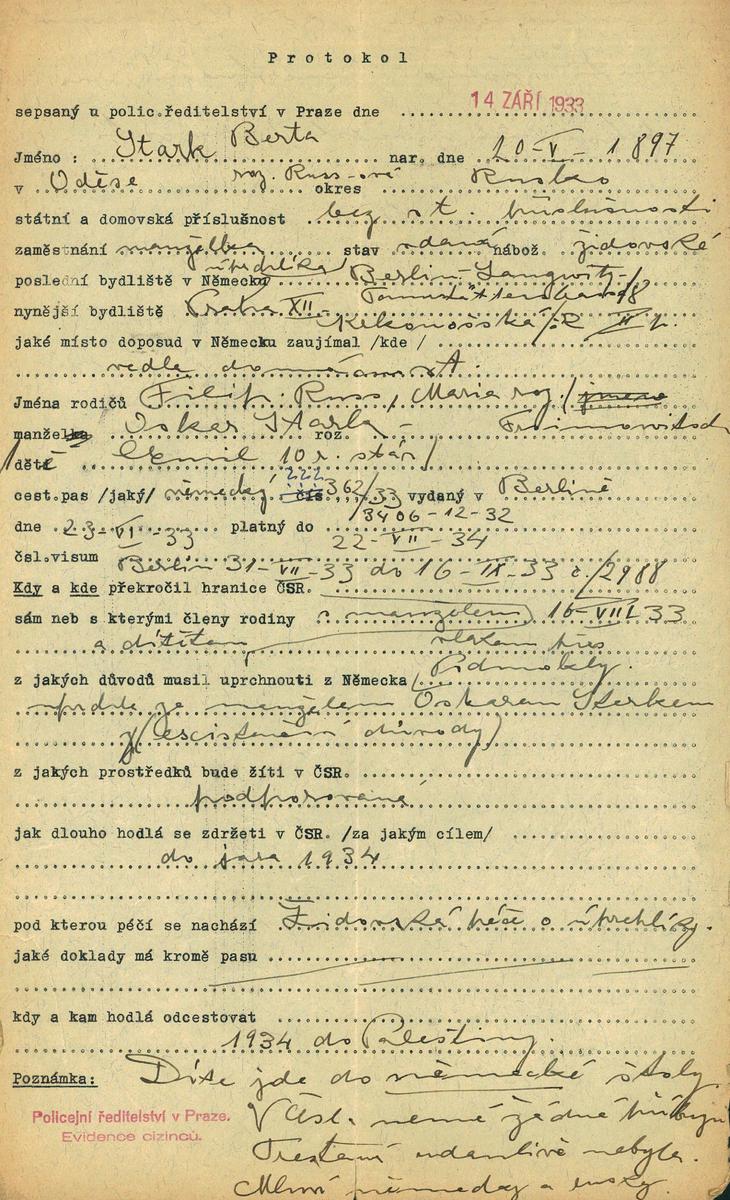 Protokol
sepsaný u polic.ředitelství v Praze dne 14 ZÁŘÍ 1933
Jméno : Stark Berta nar. dne 20-V-1897
v Oděse roz. Russ-ová okres Rusko
státní a domovská příslušnost bez st. příslušnosti
zaměstnání manželka stav vdaná nábož. židovské
poslední bydliště v Německu úředníka Berlin-
nynější bydliště Praha XII.
jaké místo doposud v Německu zaujímal /kde /
vedla domácnost.
Jména rodičů Filip Russ, Maria roz.
manžela Oskar Stark roz.
dětí 10 r. stár/
cest.pas /jaký/ německý 222 čís 362/33 vydaný v Berlíně
3406-12-32
dne 23-VI-33 platný do 22-VII-34
čsl.visum Berlin 31-VII-33 do 16-IX-33 č./2988
Kdy a kde překročil hranice ČSR.
sám neb s kterými členy rodiny s manželem 16-VIII 33
a dítětem vlakem přes
z jakých důvodů musil uprchnouti z Německa Podmokly.
ze manželem Oskarem Starkem
důvody)
z jakých prostředků bude žíti v ČSR.
podporovaná
jak dlouho hodlá se zdržeti v ČSR. /za jakým cílem/
do jara 1934
pod kterou péčí se nachází Židovská péče o uprchlíky.
jaké doklady má kromě pasu
kdy a kam hodlá odcestovat
1934 do Palestiny.
Poznámka: Dítě jde do německé školy
V Čsl. nemá žádné příbuzné
Trestaná udanlivě nebyla.
Mluví německy a rusky.
Policejní ředitelství v Praze.
Evidence cizinců.